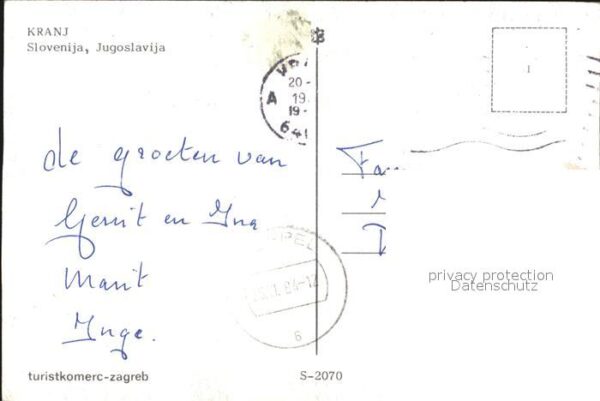 KRANJ
Slovenija, Jugoslavija
20-
A 19.
19-
641
I
de groeten van
Gerrit en Ina
Marit
Inge.
Fa
PEL
privacy protection
Datenschutz
6
turistkomerc-zagreb
S-2070